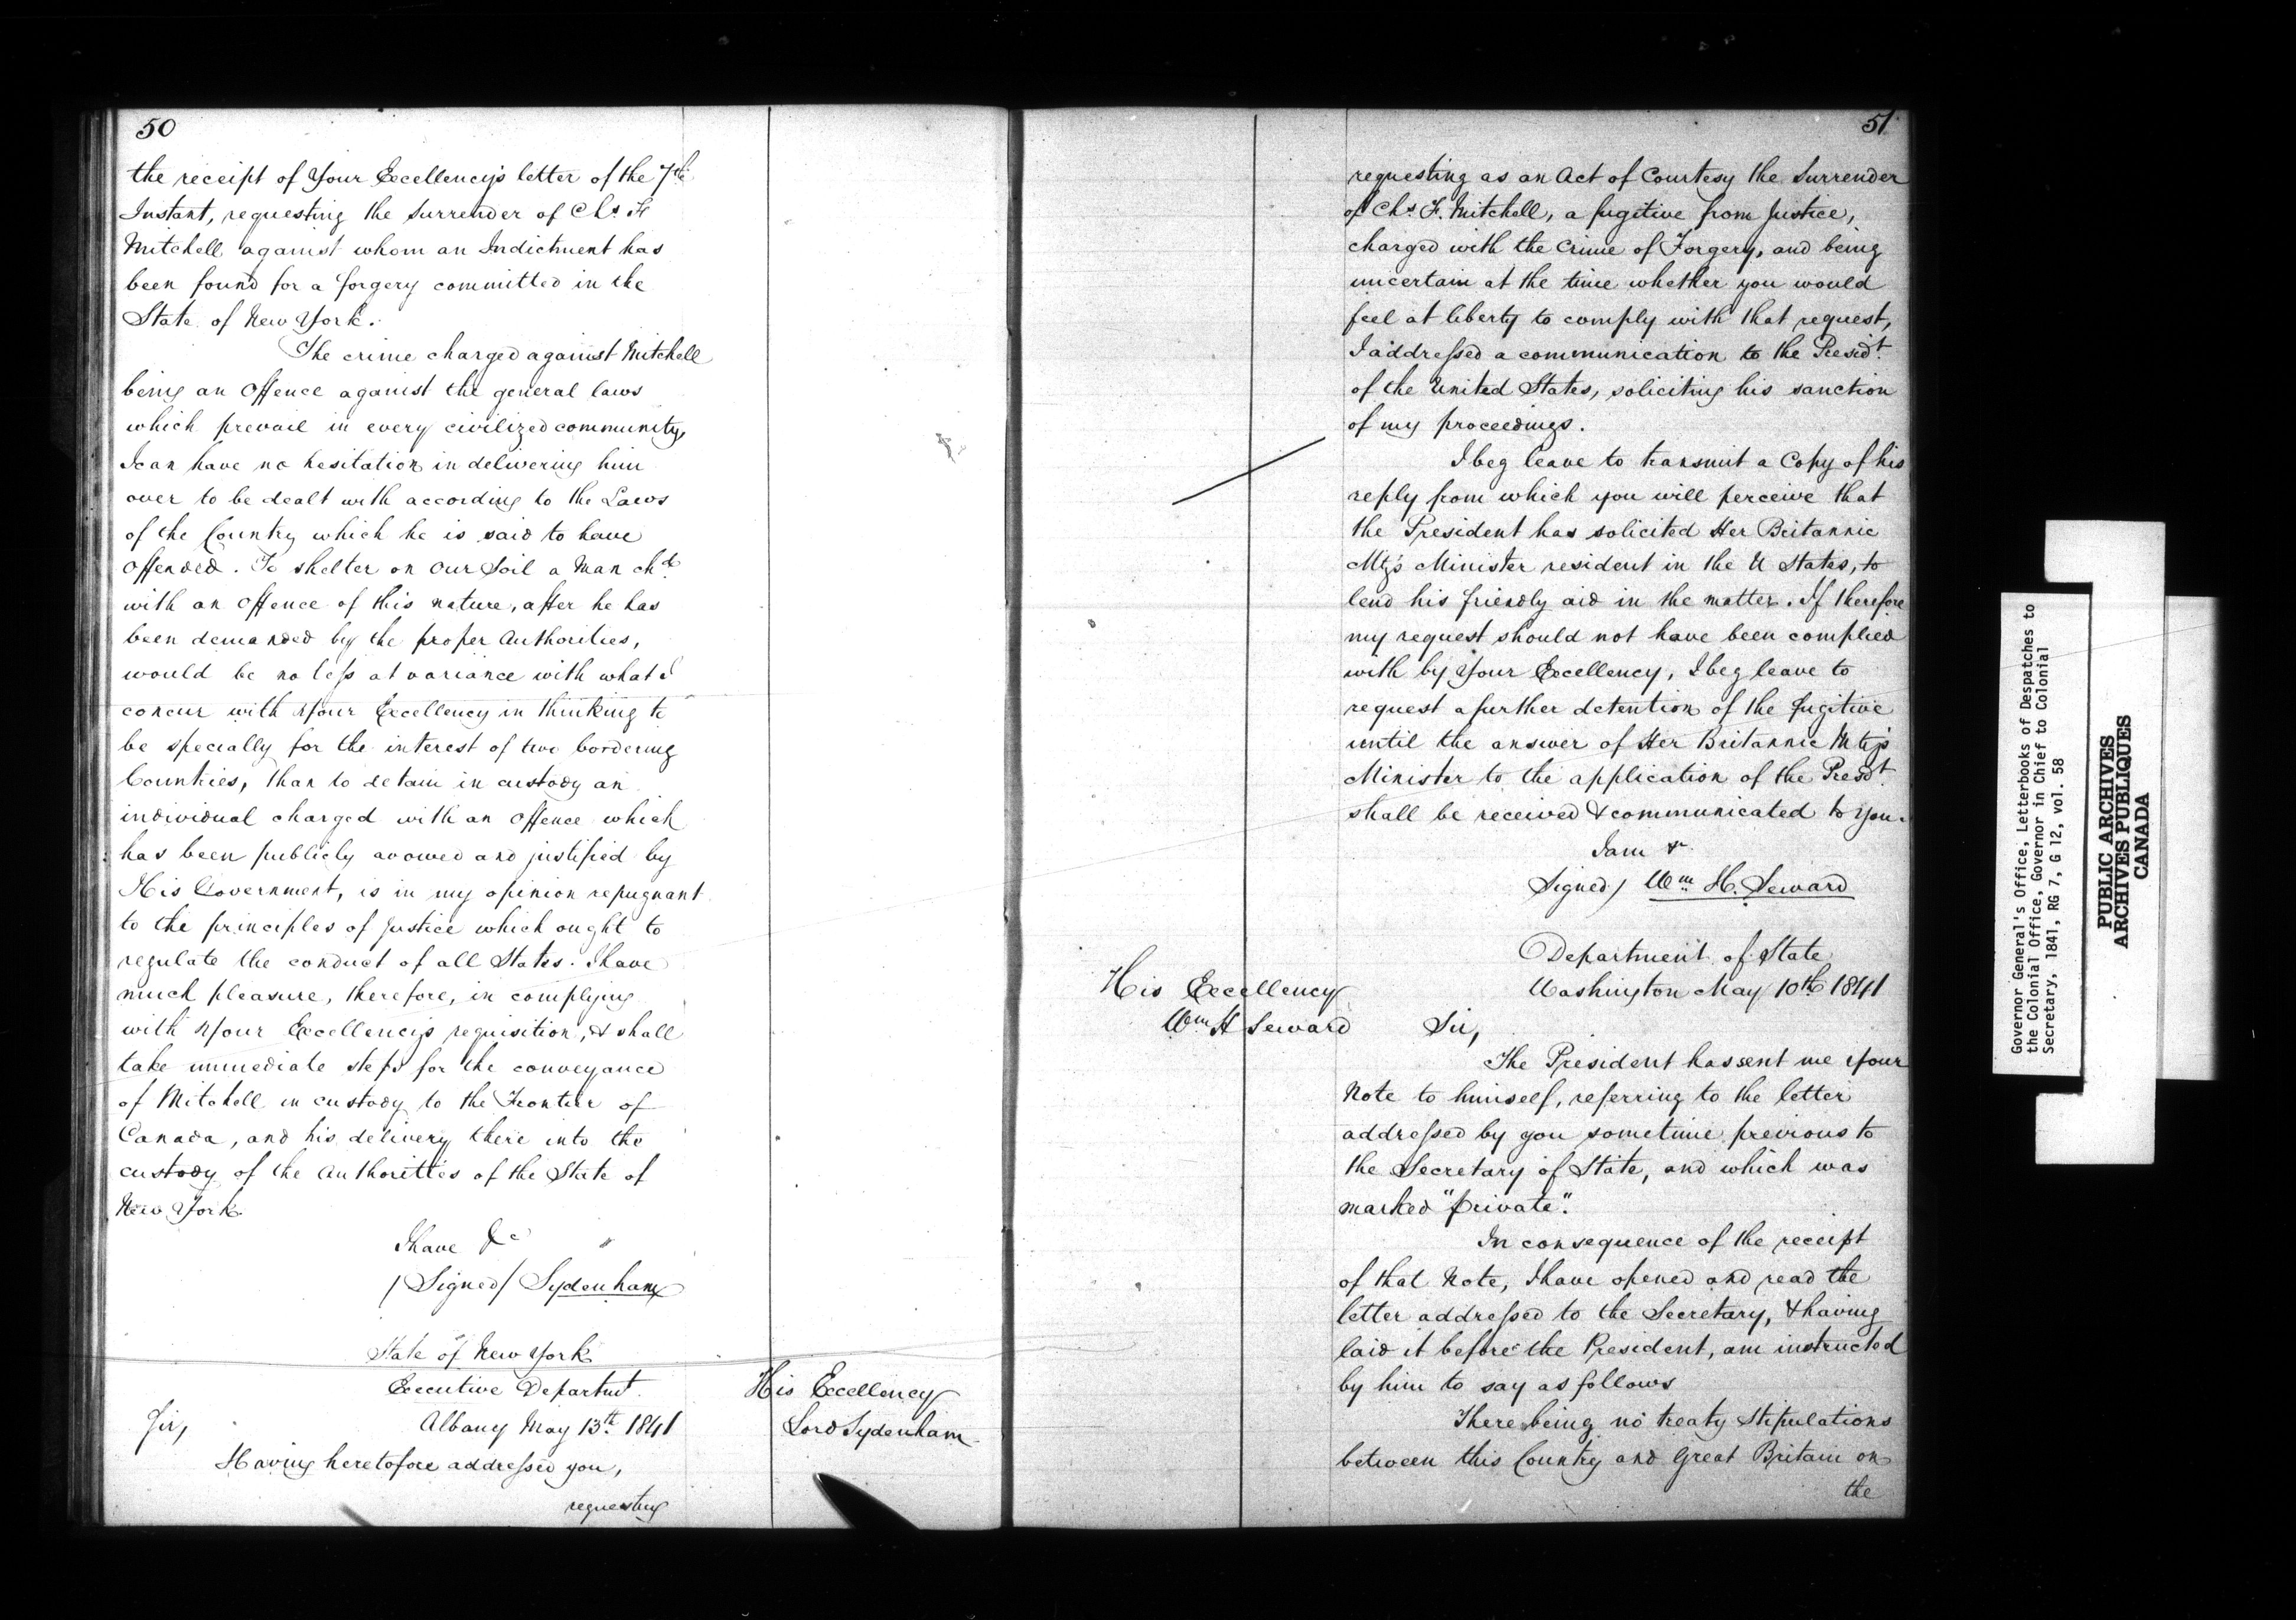 50
the receipt of Your Excellency's letter of the 7th
Instant, requesting the Surrender of Chs. F
Mitchell against whom an Indictment has
been found for a forgery committed in the
State of New York.
The crime charged against Mitchell
being an Offence against the general laws
which prevail in every civilized community,
I can have no hesitation in delivering him
over to be dealt with according to the Laws
of the Country which he is said to have
Offended. To shelter on Our Soil a Man chd.
with an Offence of this nature, after he has
been demanded by the proper Authorities,
would be no less at variance with what I
concur with Your Excellency in thinking to
be specially for the interest of two bordering
Countries, than to detain in custody an
individual charged with an Offence which
has been publicly avowed and justified by
His Government, is in my opinion repugnant
to the principles of Justice which ought to
regulate the conduct of all States. I have
much pleasure, therefore, in complying
with Your Excellency's requisition, & shall
take immediate steps for the conveyance
of Mitchell in custody to the Frontier of
Canada, and his delivery there into the
custody of the Authorities of the State of
New York.
I have &c
/Signed/ Sydenham
State of New York
Executive Departmt.
Albany May 13th. 1841
His Excellency
Lord Sydenham
Sir,
Having heretofore addressed you,
requesting
51
requesting as an Act of Courtesy the Surrender
of Chs. F. Mitchell, a fugitive from Justice,
charged with the Crime of Forgery, and being
uncertain at the time whether you would
feel at liberty to comply with that request,
I addressed a communication to the Presidt.
of the United States, soliciting his sanction
of my proceedings.
I beg leave to transmit a Copy of his
reply from which you will perceive that
the President has solicited Her Britannic
Mty's Minister resident in the U States, to
lend his friendly aid in the matter. If therefore
my request should not have been complied
with by Your Excellency, I beg leave to
request a further detention of the fugitive
until the answer of Her Britannic Mty's
Minister to the application of the Presdt
shall be received & communicated to you.
I am &
Signed / Wm. H. Seward
Department of State
Washington May 10th 1841
His Excellency
Wm H Seward
Sir,
The President has sent me Your
Note to himself, referring to the letter
addressed by you sometime previous to
the Secretary of State, and which was
marked "private".
In consequence of the receipt
of that Note, I have opened and read the
letter addressed to the Secretary, & having
laid it before the President, am instructed
by him to say as follows
There being no treaty stipulations
between this Country and Great Britain on
the
Governor General's Office, Letterbooks of Despatches to
the Colonial Office, Governor in Chief to Colonial
Secretary, 1841, RG 7, G 12, vol. 58
PUBLIC ARCHIVES
ARCHIVES PUBLIQUES
CANADA